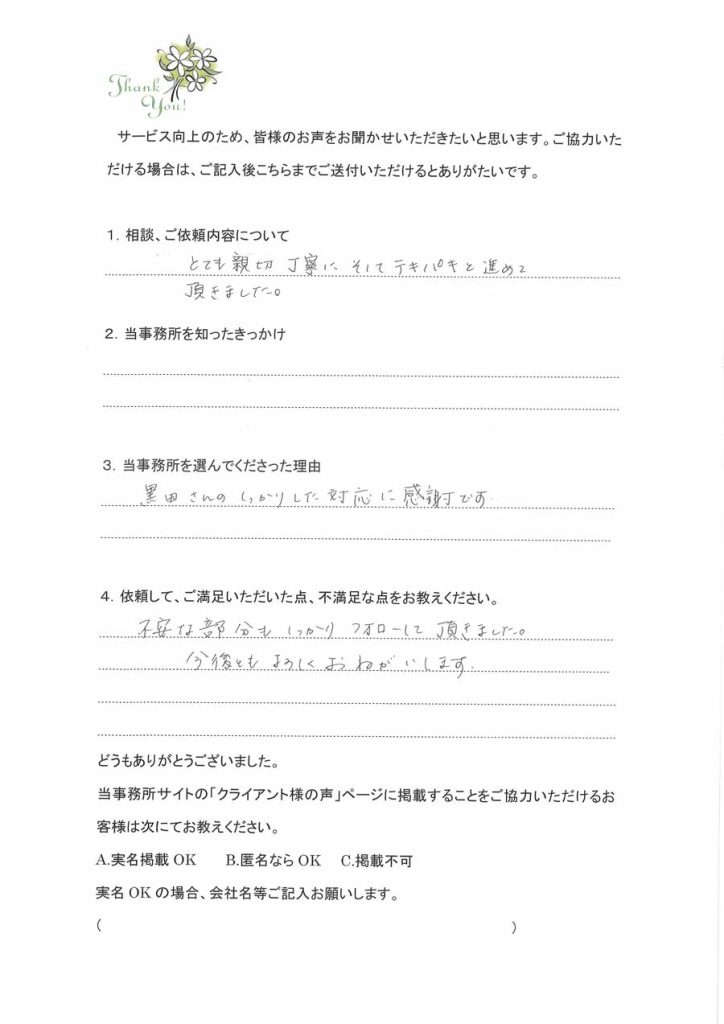 Thank
You!
サービス向上のため、皆様のお声をお聞かせいただきたいと思います。ご協力いた
だける場合は、ご記入後こちらまでご送付いただけるとありがたいです。
１．相談、ご依頼内容について
とても親切 丁寧に そして テキパキと 進めて
頂きました。
２．当事務所を知ったきっかけ
３．当事務所を選んでくださった理由
黒田さんの しっかりした 対応に 感謝です.
４．依頼して、ご満足いただいた点、不満足な点をお教えください。
不安な部分も しっかり フォローして 頂きました。
今後とも よろしく おねがいします.
どうもありがとうございました。
当事務所サイトの「クライアント様の声」ページに掲載することをご協力いただけるお
客様は次にてお教えください。
A.実名掲載 OK　B.匿名なら OK　C.掲載不可
実名 OK の場合、会社名等ご記入お願いします。
（　　　　　　　　　　　　　　　　　　　　）